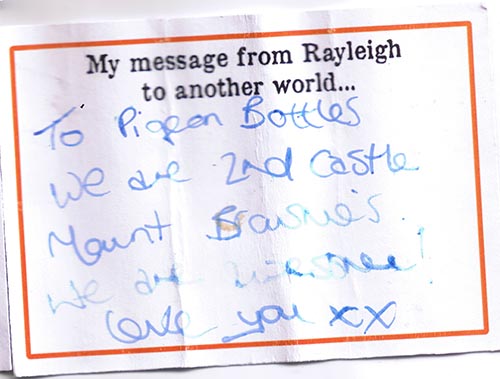 My message from Rayleigh
to another world...
To Pigeon Bottles
We are 2nd Castle
Mount Brownies.
We are awesome!
Love you xx